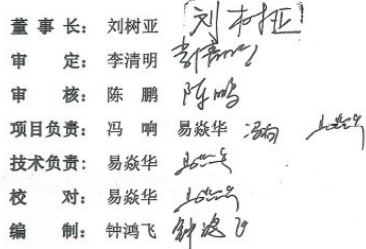 董 事 长： 刘树亚 刘树亚
审 定： 李清明 李清明
审 核： 陈 鹏 陈鹏
项目负责： 冯 响 易焱华 冯响 易焱华
技术负责： 易焱华 易焱华
校 对： 易焱华 易焱华
编 制： 钟鸿飞 钟鸿飞